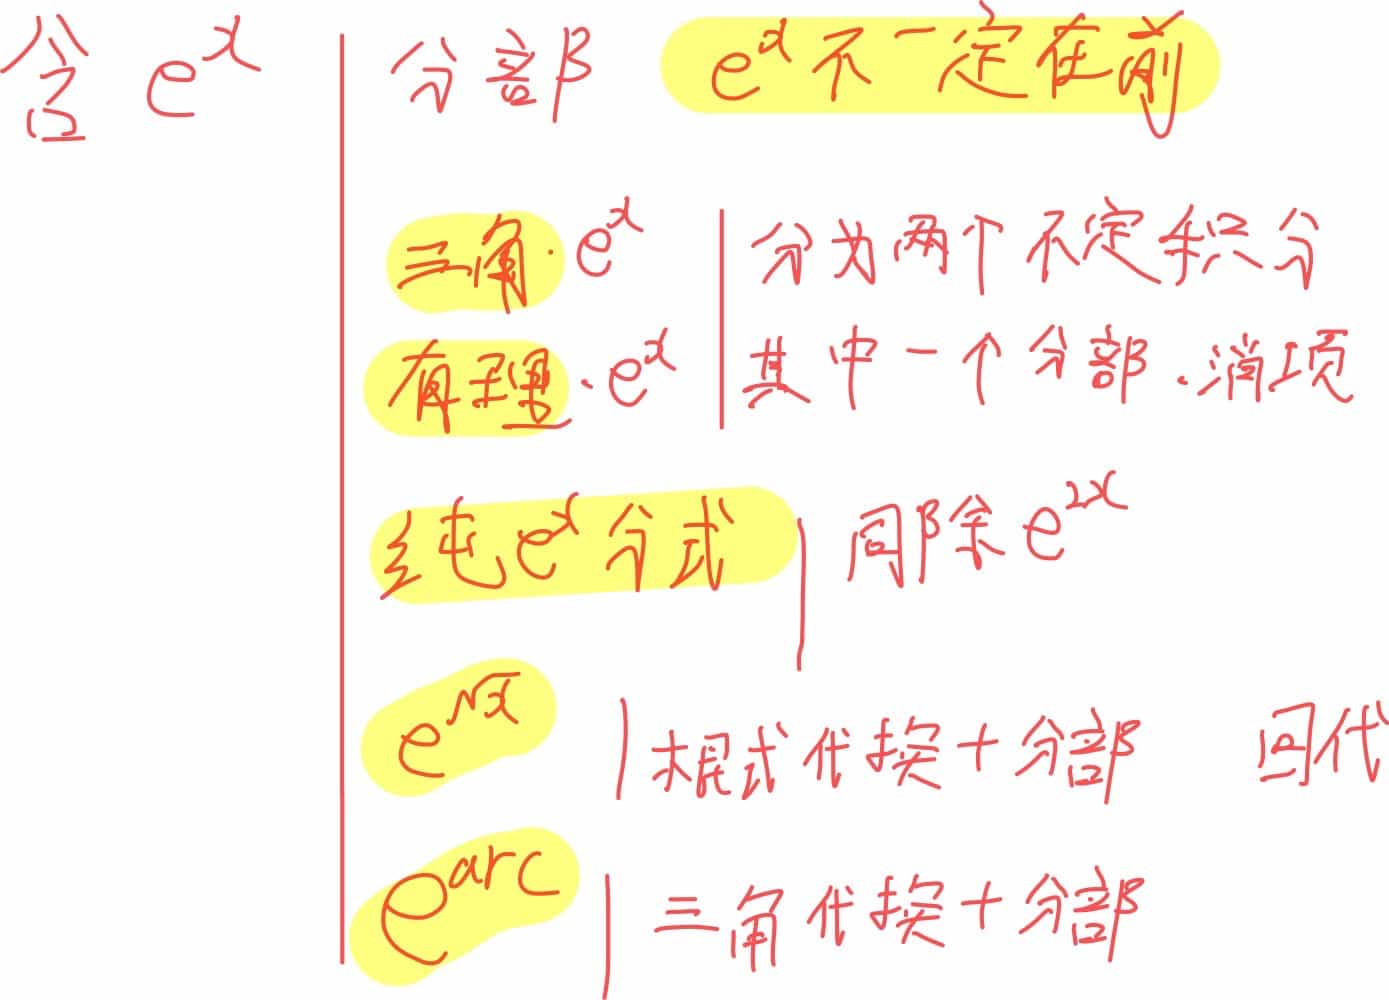 含 e^x 分部 e^x不一定在前
三角·e^x 分为两个不定积分
有理·e^x 其中一个分部.消项
纯e^x分式 同除e^{2x}
e^{√x} 根式代换+分部 回代
e^{arc} 三角代换+分部